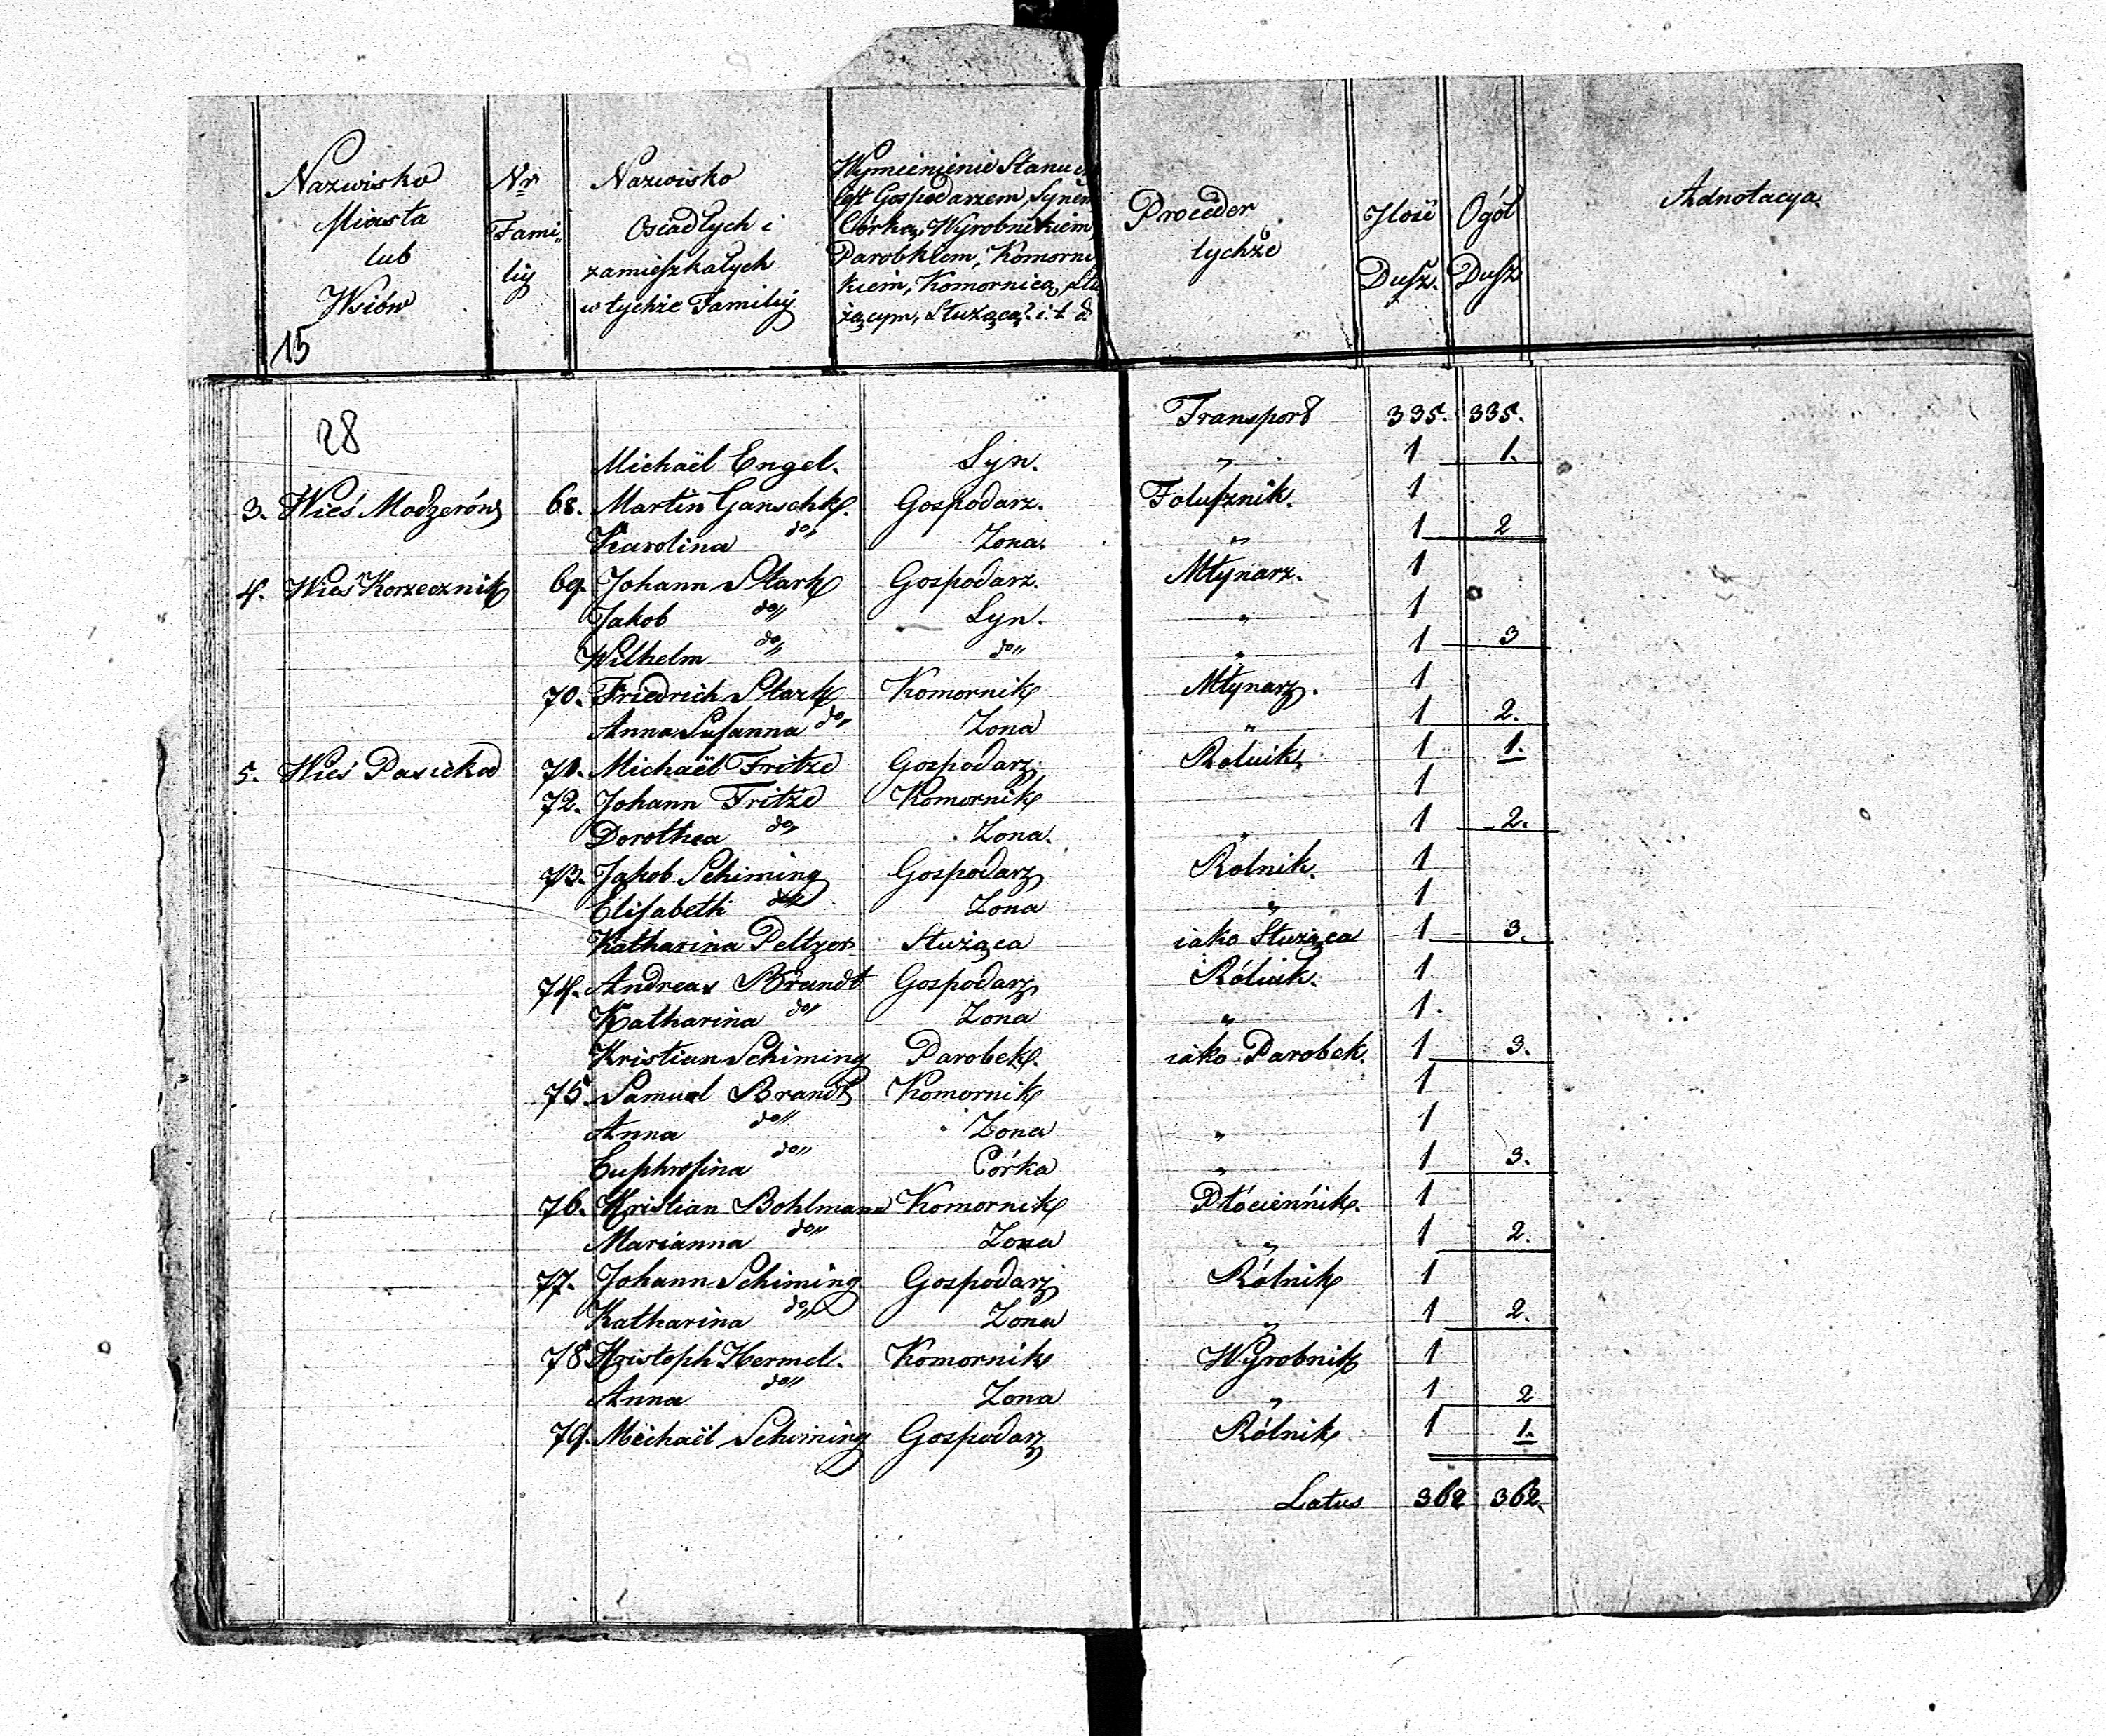 Nazwisko Miasta lub Wsiów
Nr Fami„ liy
Nazwisko Osiadłych i zamieszkałych w tychże Familiy
Wymienienie Stanu
Gospodarzem, Synem
Córką, Wyrobnikiem,
Parobkiem, Komorni
kiem, Komornicą, Słu
żącym, Służącą? i.t.d.
Proceder tychże
Ilość Dusz.
Ogół Dusz
Adnotacya
15
28
Transport 335. 335.
Michaël Engel. Syn. „ 1 1.
3. Wieś Modzerów 68. Martin Ganschk. Gospodarz. Folusznik. 1
Karolina do„ Zona. „ 1 2
4. Wieś Korzecznik 69. Johann Stark Gospodarz. Młynarz. 1
Jakob do„ Syn. „ 1
Wilhelm do„ do„ „ 1 3
70. Friedrich Stark Komornik Młynarz. 1
Anna Susanna do„ Zona „ 1 2.
5. Wieś Pasieka 71. Michaël Fritze Gospodarz Rolnik. 1 1.
72. Johann Fritze Komornik 1
Dorothea do„ Zona. „ 1 2.
73. Jakob Schiming Gospodarz Rolnik. 1
Elisabeth do„ Zona „ 1
Katharina Peltzer Służąca iako Służąca 1 3.
74. Andreas Brandt Gospodarz Rólnik. 1
Katharina do„ Zona „ 1.
Kristian Schiming Parobek. iako Parobek. 1 3.
75. Samuel Brandt Komornik 1
Anna do„ Zona „ 1
Euphrosina do„ Córka „ 1 3.
76. Kristian Bohlmann Komornik Płóciennik. 1
Marianna do„ Zona „ 1 2.
77. Johann Schiming Gospodarz Rólnik 1
Katharina do„ Zona „ 1 2.
78. Kristoph Hermel. Komornik Wyrobnik 1
Anna do„ Zona „ 1 2
79. Michaël Schiming Gospodarz Rólnik 1 1.
Latus 362 362.